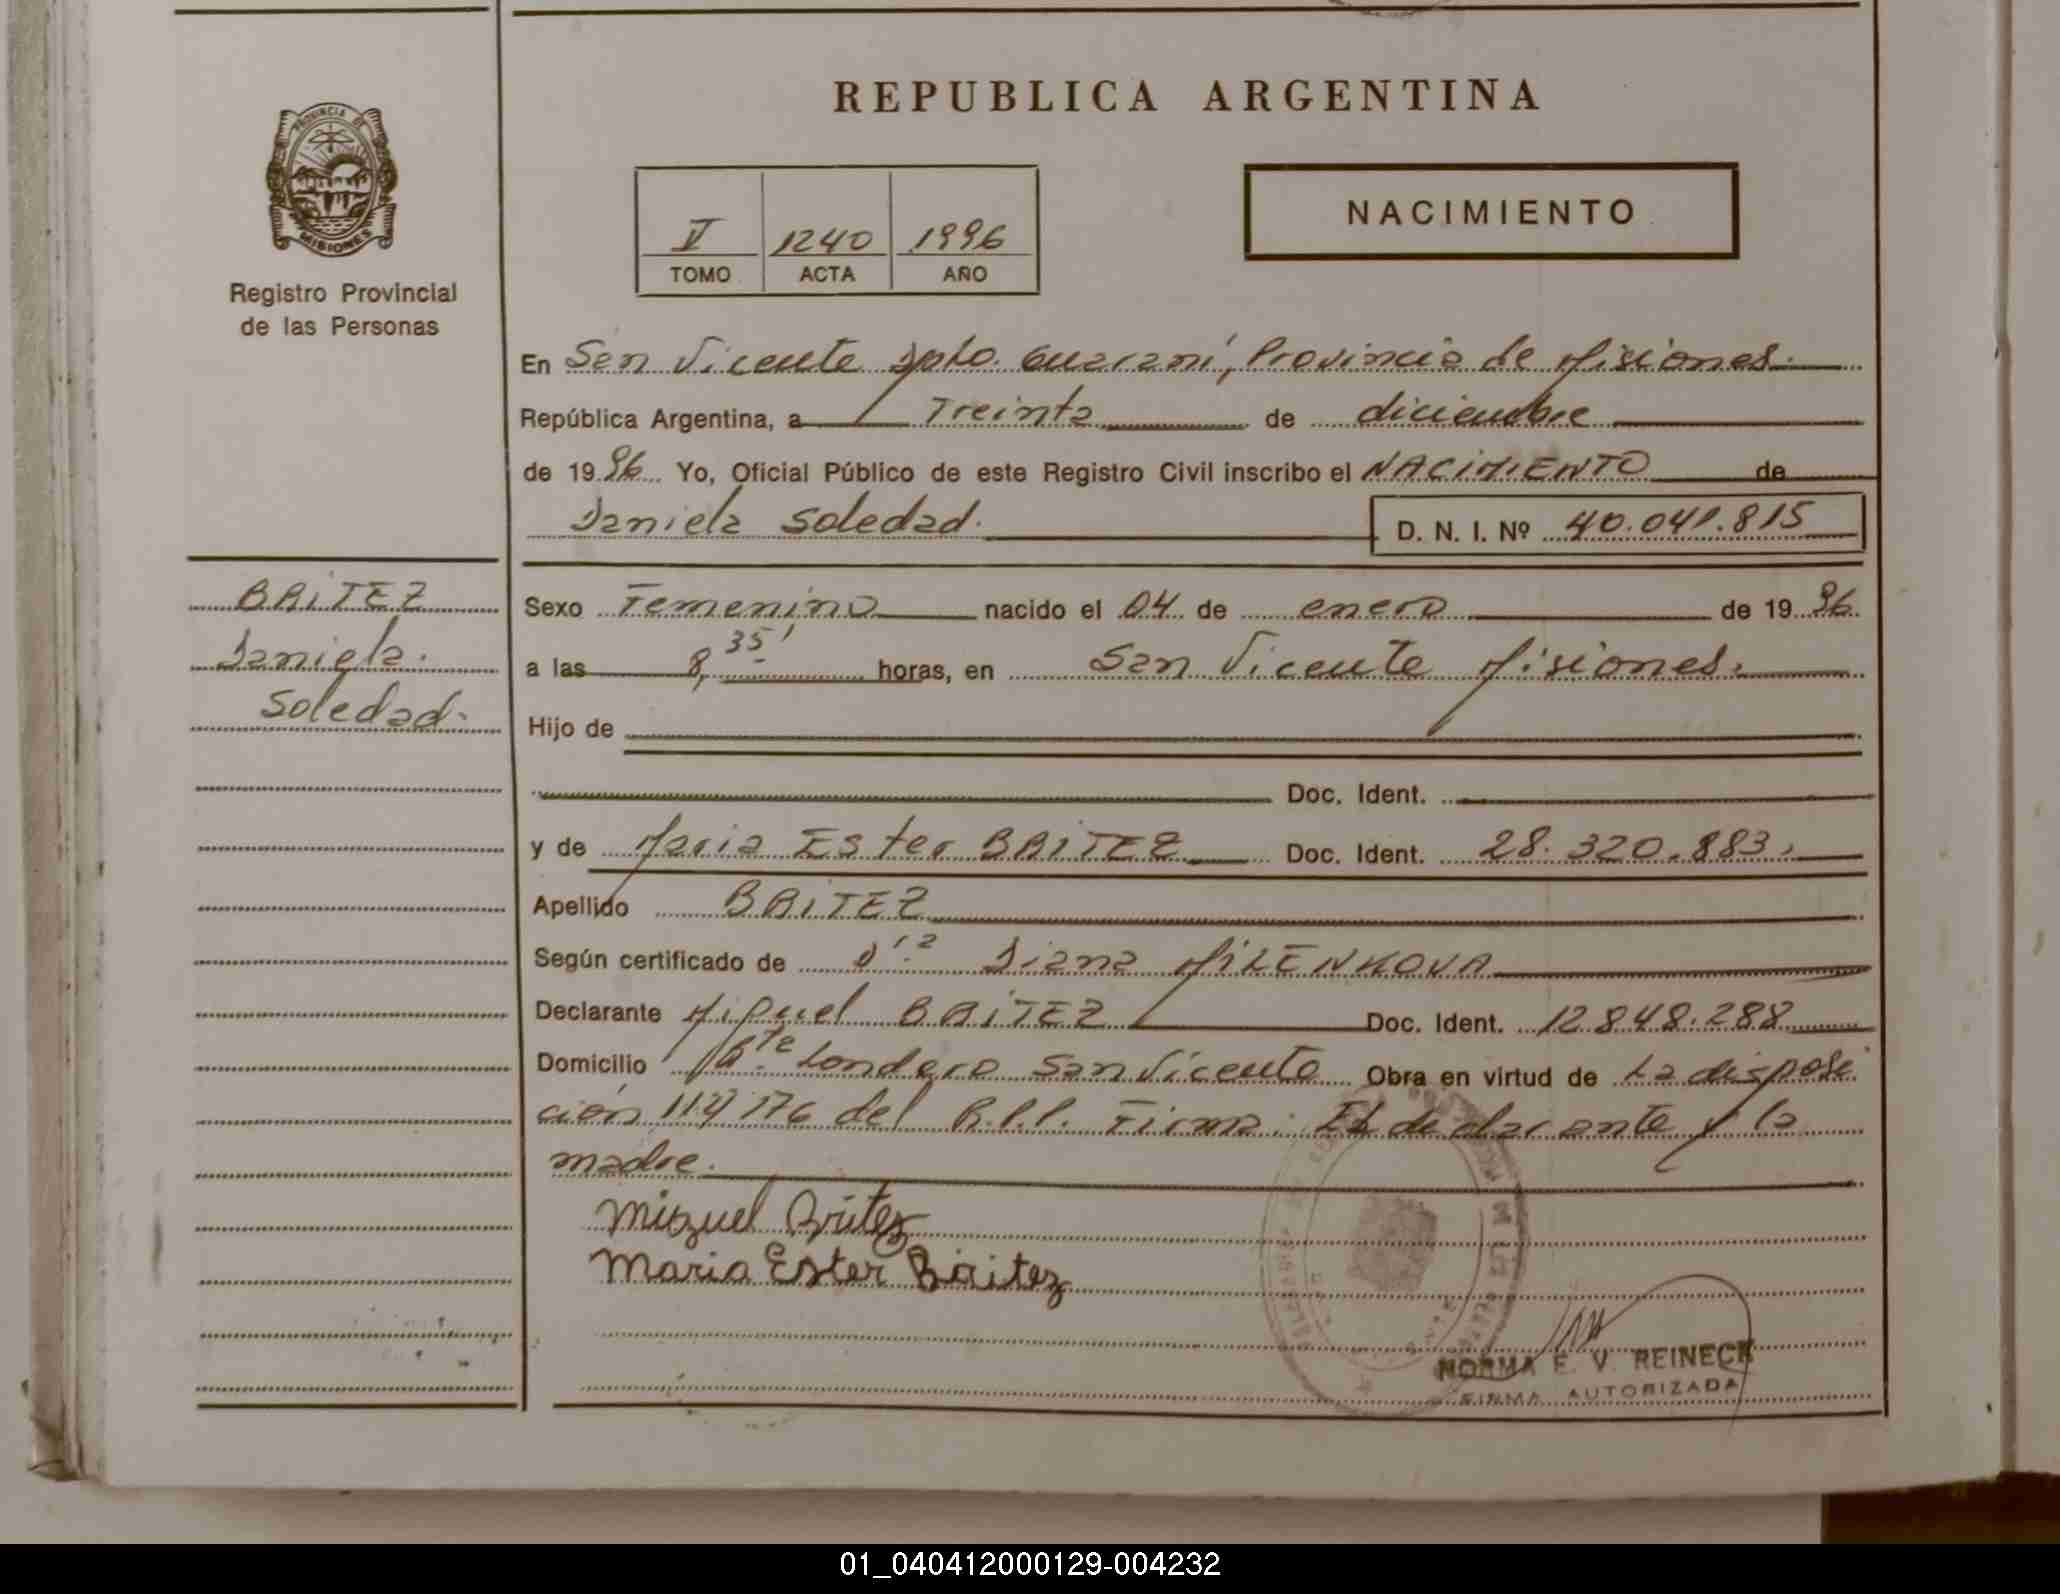 REPUBLICA ARGENTINA
PROVINCIA DE
MISIONES
Registro Provincial
de las Personas
V 1240 1996
TOMO ACTA AÑO
NACIMIENTO
En San Vicente Dpto. Guaraní, Provincia de Misiones.
República Argentina, a Treinta de diciembre
de 1996 Yo, Oficial Público de este Registro Civil inscribo el NACIMIENTO de
Daniela Soledad.
D. N. I. Nº 40.041.815
BRITEZ
Daniela.
Soledad.
Sexo Femenino nacido el 04 de enero de 1996.
a las 8,35' horas, en San Vicente Misiones.
Hijo de
Doc. Ident.
y de Maria Ester BRITEZ Doc. Ident. 28.320.883.
Apellido BRITEZ
Según certificado de Dra. Diana MILENKOVA
Declarante Miguel BRITEZ Doc. Ident. 12848.288
Domicilio Londero San Vicente Obra en virtud de La disposi
ción 114/76 del R.P.P. Firma: El declarante y la
madre.
Miguel Britez
Maria Ester Báitez
NORMA E. V. REINECK
FIRMA AUTORIZADA
01_040412000129-004232